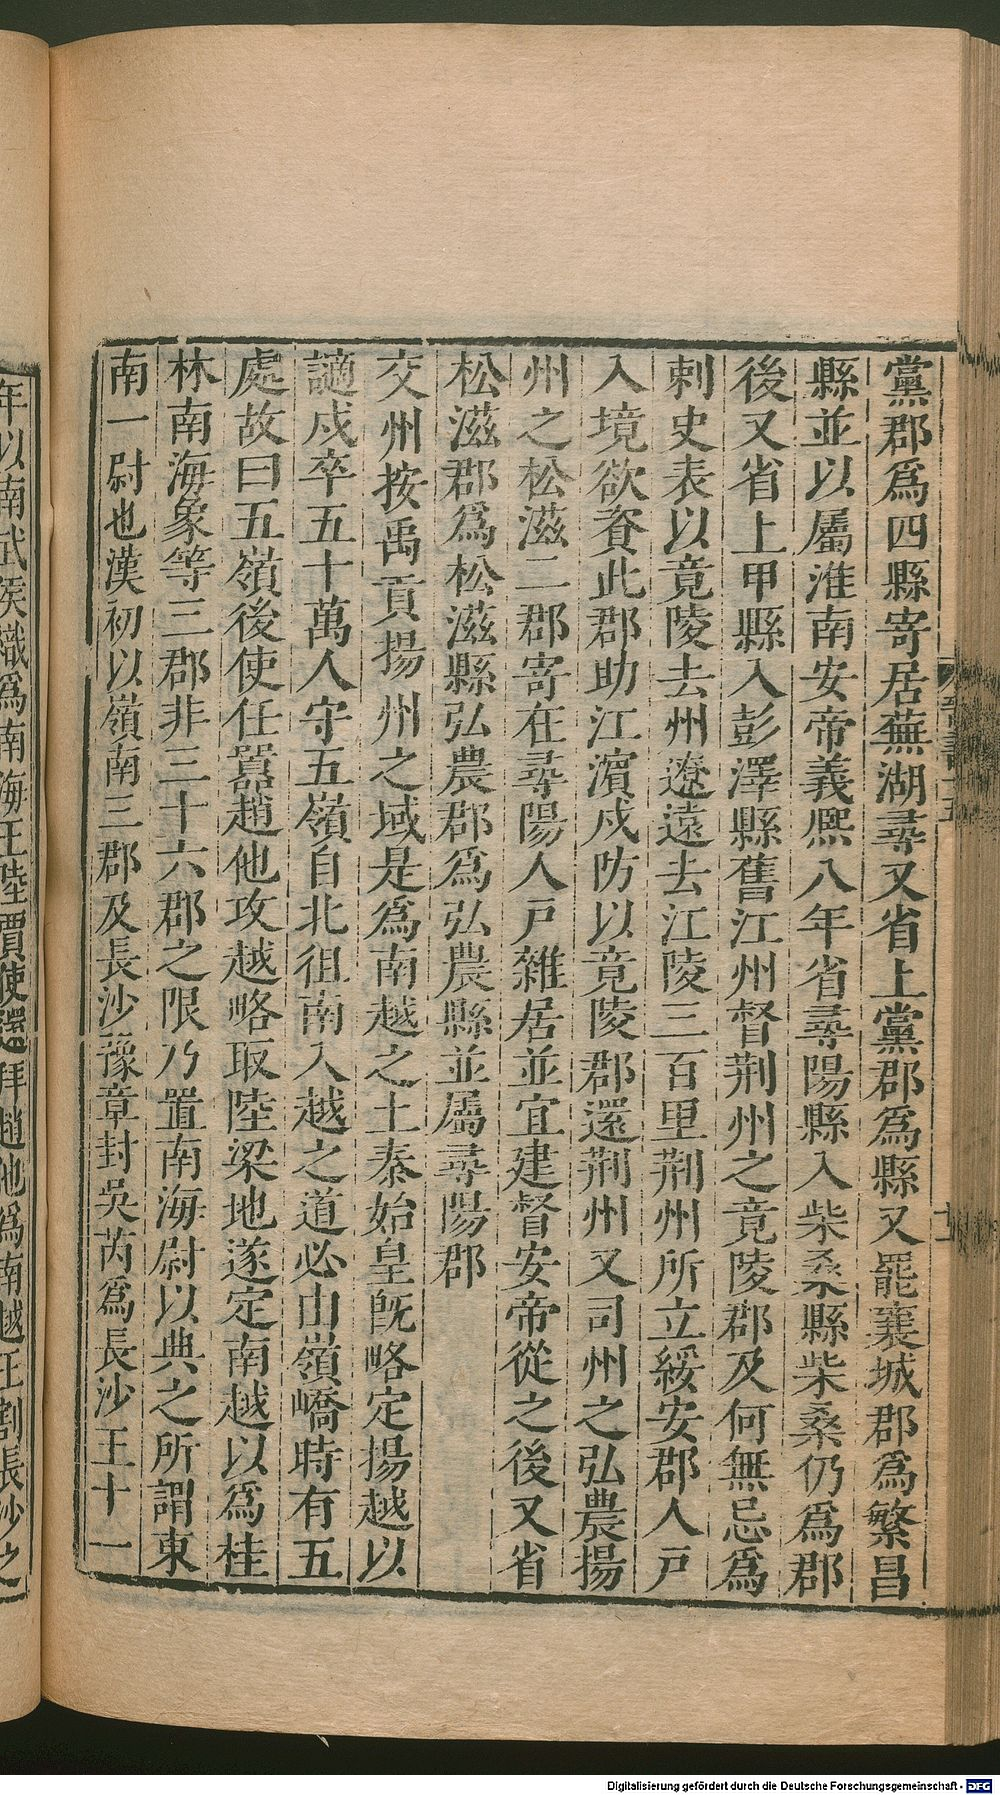 黨郡爲四縣寄居蕪湖尋又省上黨郡爲縣又罷襄城郡爲繁昌
縣並以屬淮南安帝義熙八年省尋陽縣入柴桑縣柴桑仍爲郡
後又省上甲縣入彭澤縣舊江州督荆州之竟陵郡及何無忌爲
刺史表以竟陵去州遼遠去江陵三百里荆州所立綏安郡人戸
入境欲資此郡助江濵戍防以竟陵郡還荆州又司州之弘農揚
州之松滋二郡寄在尋陽人戸雜居並宜建督安帝從之後又省
松滋郡爲松滋縣弘農郡爲弘農縣並屬尋陽郡
交州按禹貢揚州之域是爲南越之土秦始皇旣略定揚越以
謫戍卒五十萬人守五嶺自北徂南入越之道必由嶺嶠時有五
處故曰五嶺後使任囂趙他攻越略取陸梁地遂定南越以爲桂
林南海象等三郡非三十六郡之限乃置南海尉以典之所謂東
南一尉也漢初以嶺南三郡及長沙豫章封吳芮爲長沙王十一
年以南武侯織爲南海王陸賈使還拜趙他爲南越王割長沙之
Digitalisierung gefördert durch die Deutsche Forschungsgemeinschaft - DFG